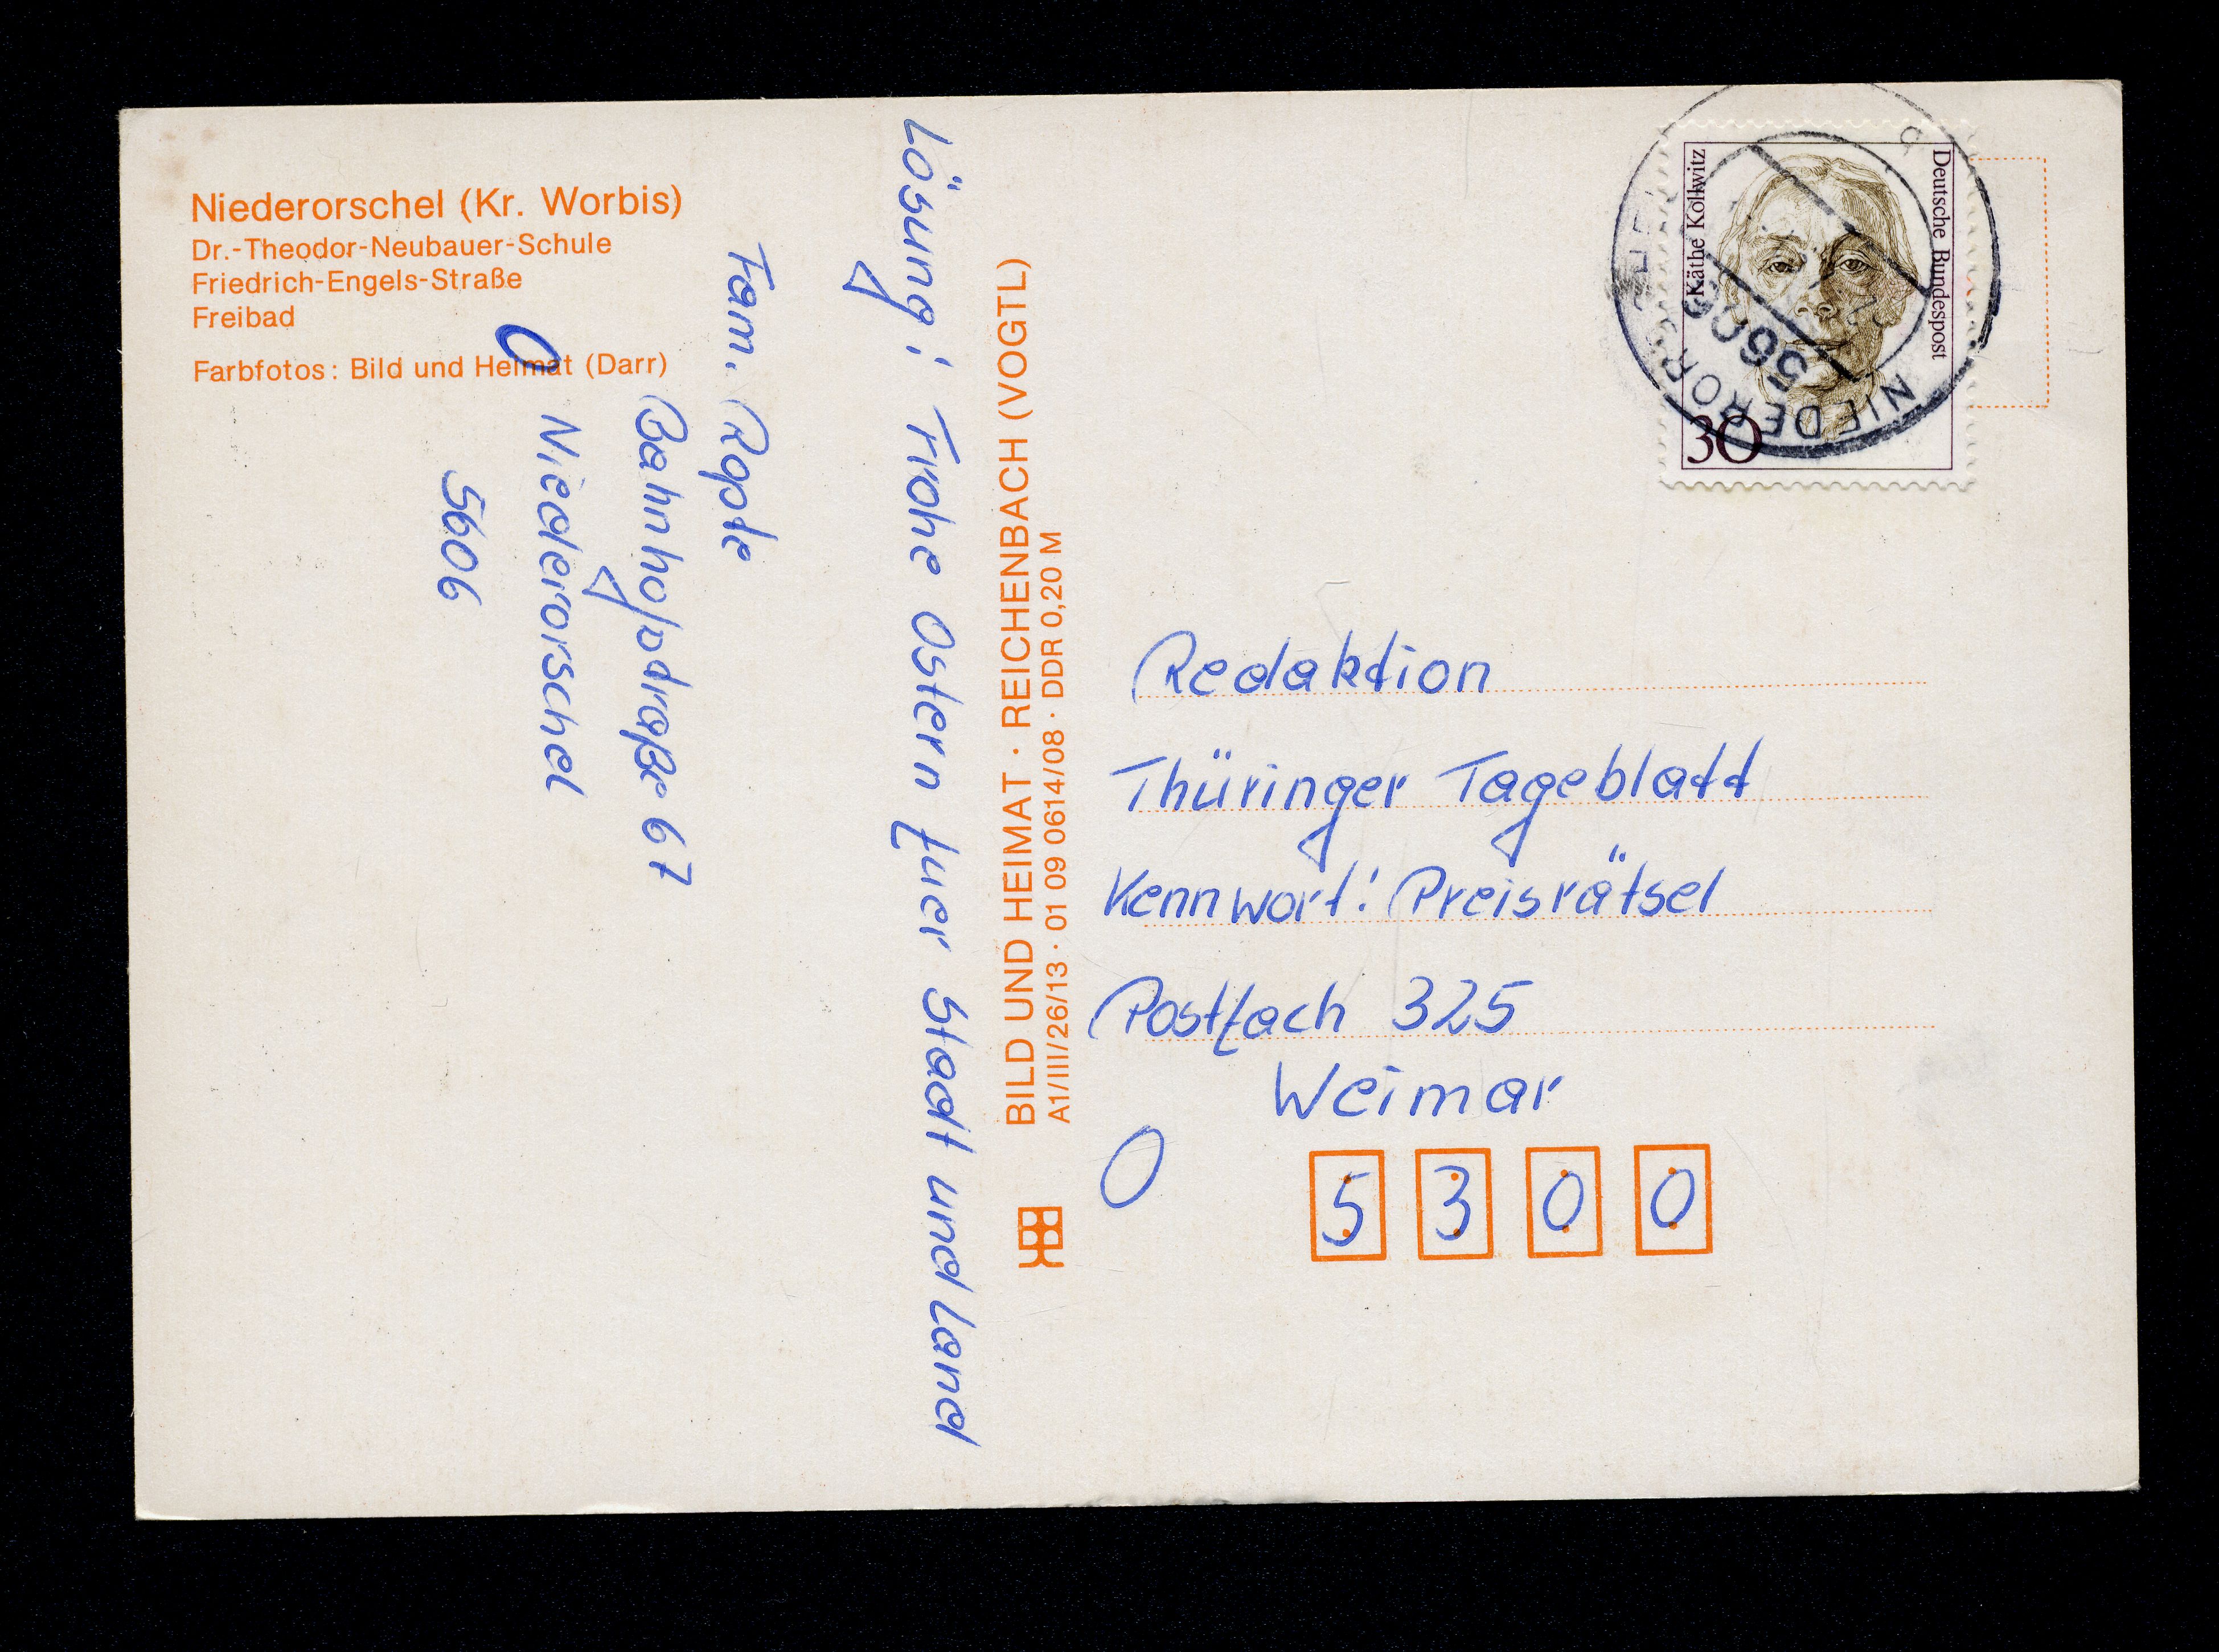 Niederorschel (Kr. Worbis)
Dr.-Theodor-Neubauer-Schule
Friedrich-Engels-Straße
Freibad
Farbfotos: Bild und Heimat (Darr)
Lösung: Frohe Ostern fuer Stadt und Land
Fam. Rople
Bahnhofstraße 67
O Niederorschel
5606
BILD UND HEIMAT · REICHENBACH (VOGTL)
A1/III/26/13 · 01 09 0614/08 · DDR 0,20 M
Deutsche Bundespost
Käthe Kollwitz
30
NIEDERORSCHEL
5606
Redaktion
Thüringer Tageblatt
Kennwort: Preisrätsel
Postfach 325
Weimar
O 5300